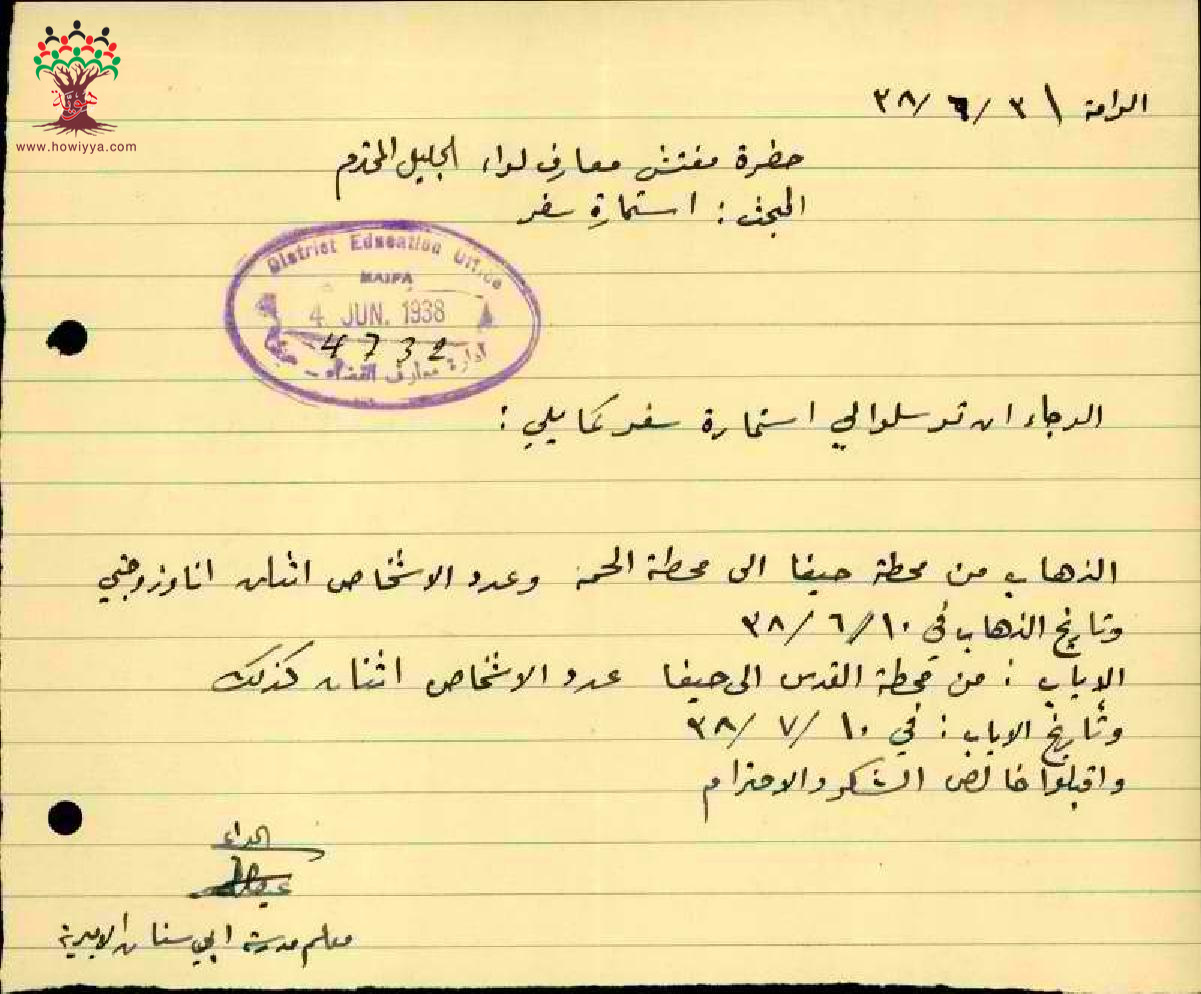 هوية
www.howiyya.com
الرامة \ ٣ /٦ /٣٨
حضرة مفتش معارف لواء الجليل المحترم
المبحث : استمارة سفر
District Education Office
HAIFA
4 JUN. 1938
4732
ادارة معارف القضاء - حيفا
الرجاء ان ترسلوا لي استمارة سفر كما يلي :
الذهاب من محطة حيفا الى محطة الحمة وعدد الاشخاص اثنان انا وزوجتي
وتاريخ الذهاب في ١٠ /٦ /٣٨
الاياب : من محطة القدس الى حيفا عدد الاشخاص اثنان كذلك
وتاريخ الاياب : في ١٠ /٧ /٣٨
واقبلوا خالص الشكر والاحترام
معلم مدرسة ابي سنان الاميرية